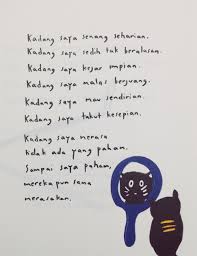 Kadang saya senang seharian.
Kadang saya sedih tak beralasan.
Kadang saya kejar impian.
Kadang saya malas berjuang.
Kadang saya mau sendirian.
Kadang saya takut kesepian.
Kadang saya merasa
tidak ada yang paham.
Sampai saya paham,
mereka pun sama
merasakan.